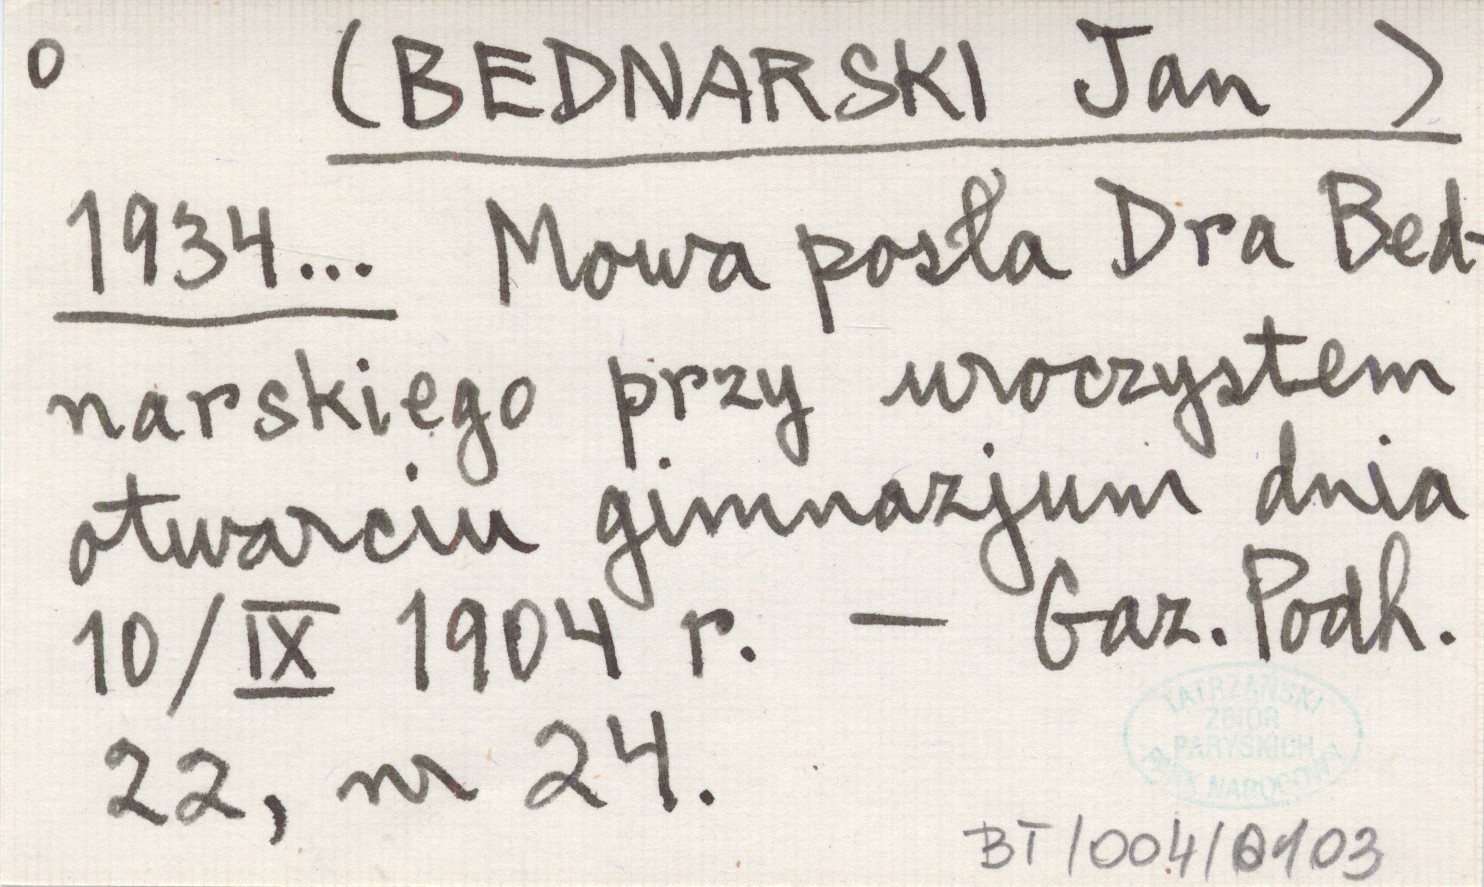 o (BEDNARSKI Jan )
1934... Mowa posła Dra Bed-
narskiego przy uroczystem
otwarciu gimnazjum dnia
10/IX 1904 r. — Gaz. Podh.
22, nr 24.
TATRZAŃSKI
ZBIÓR
PARYSKICH
PARK NARODOWY
BT/004/0103